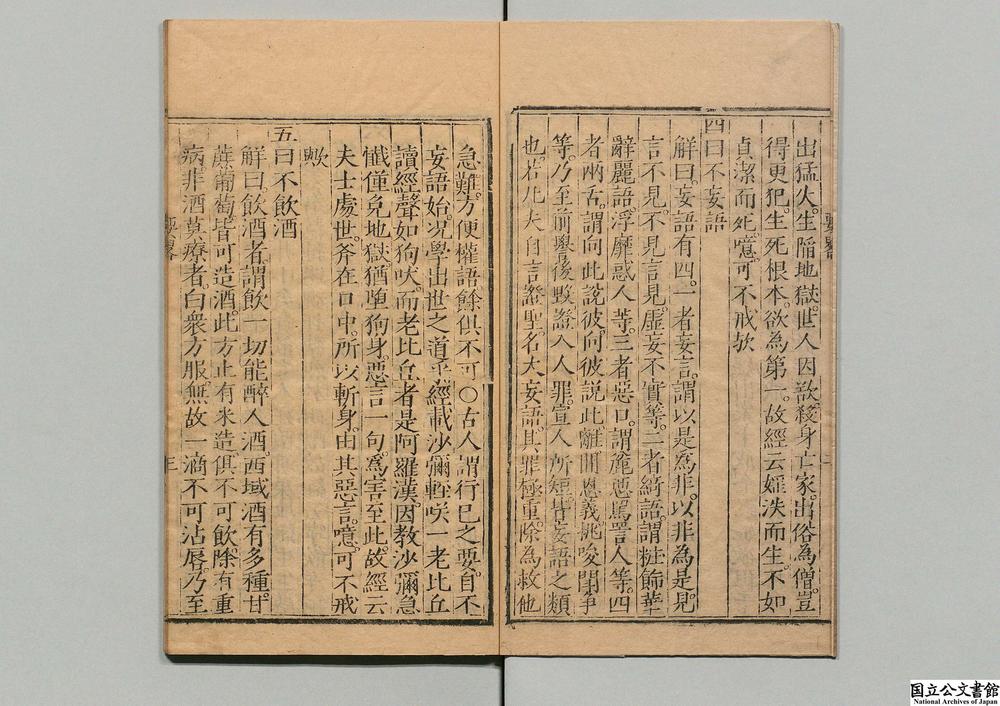 出猛火生陷地獄世人因欲殺身亡家出俗為僧豈
得更犯生死根本欲為第一故經云婬泆而生不如
貞潔而死噫可不戒歟
四曰不妄語
解曰妄語有四一者妄言謂以是為非以非為是見
言不見不見言見虛妄不實等二者綺語謂粧飾華
辭麗語浮靡惑人等三者惡口謂麁惡罵詈人等四
者兩舌謂向此說彼向彼說此離間恩義挑唆鬭爭
等乃至前譽後毀證入人罪宣人所短皆妄語之類
也若凡夫自言證聖名大妄語其罪極重除為救他
急難方便權語餘俱不可○古人謂行己之要自不
妄語始况學出世之道乎經載沙彌輕咲一老比丘
讀經聲如狗吠而老比丘者是阿羅漢因教沙彌急
懺僅免地獄猶墮狗身惡言一句為害至此故經云
夫士處世斧在口中所以斬身由其惡言噫可不戒
歟
五曰不飲酒
解曰飲酒者謂飲一切能醉人酒西域酒有多種甘
蔗葡萄皆可造酒此方止有米造俱不可飲除有重
病非酒莫療者白衆方服無故一滴不可沾唇乃至
要畧
三
国立公文書館
National Archives of Japan